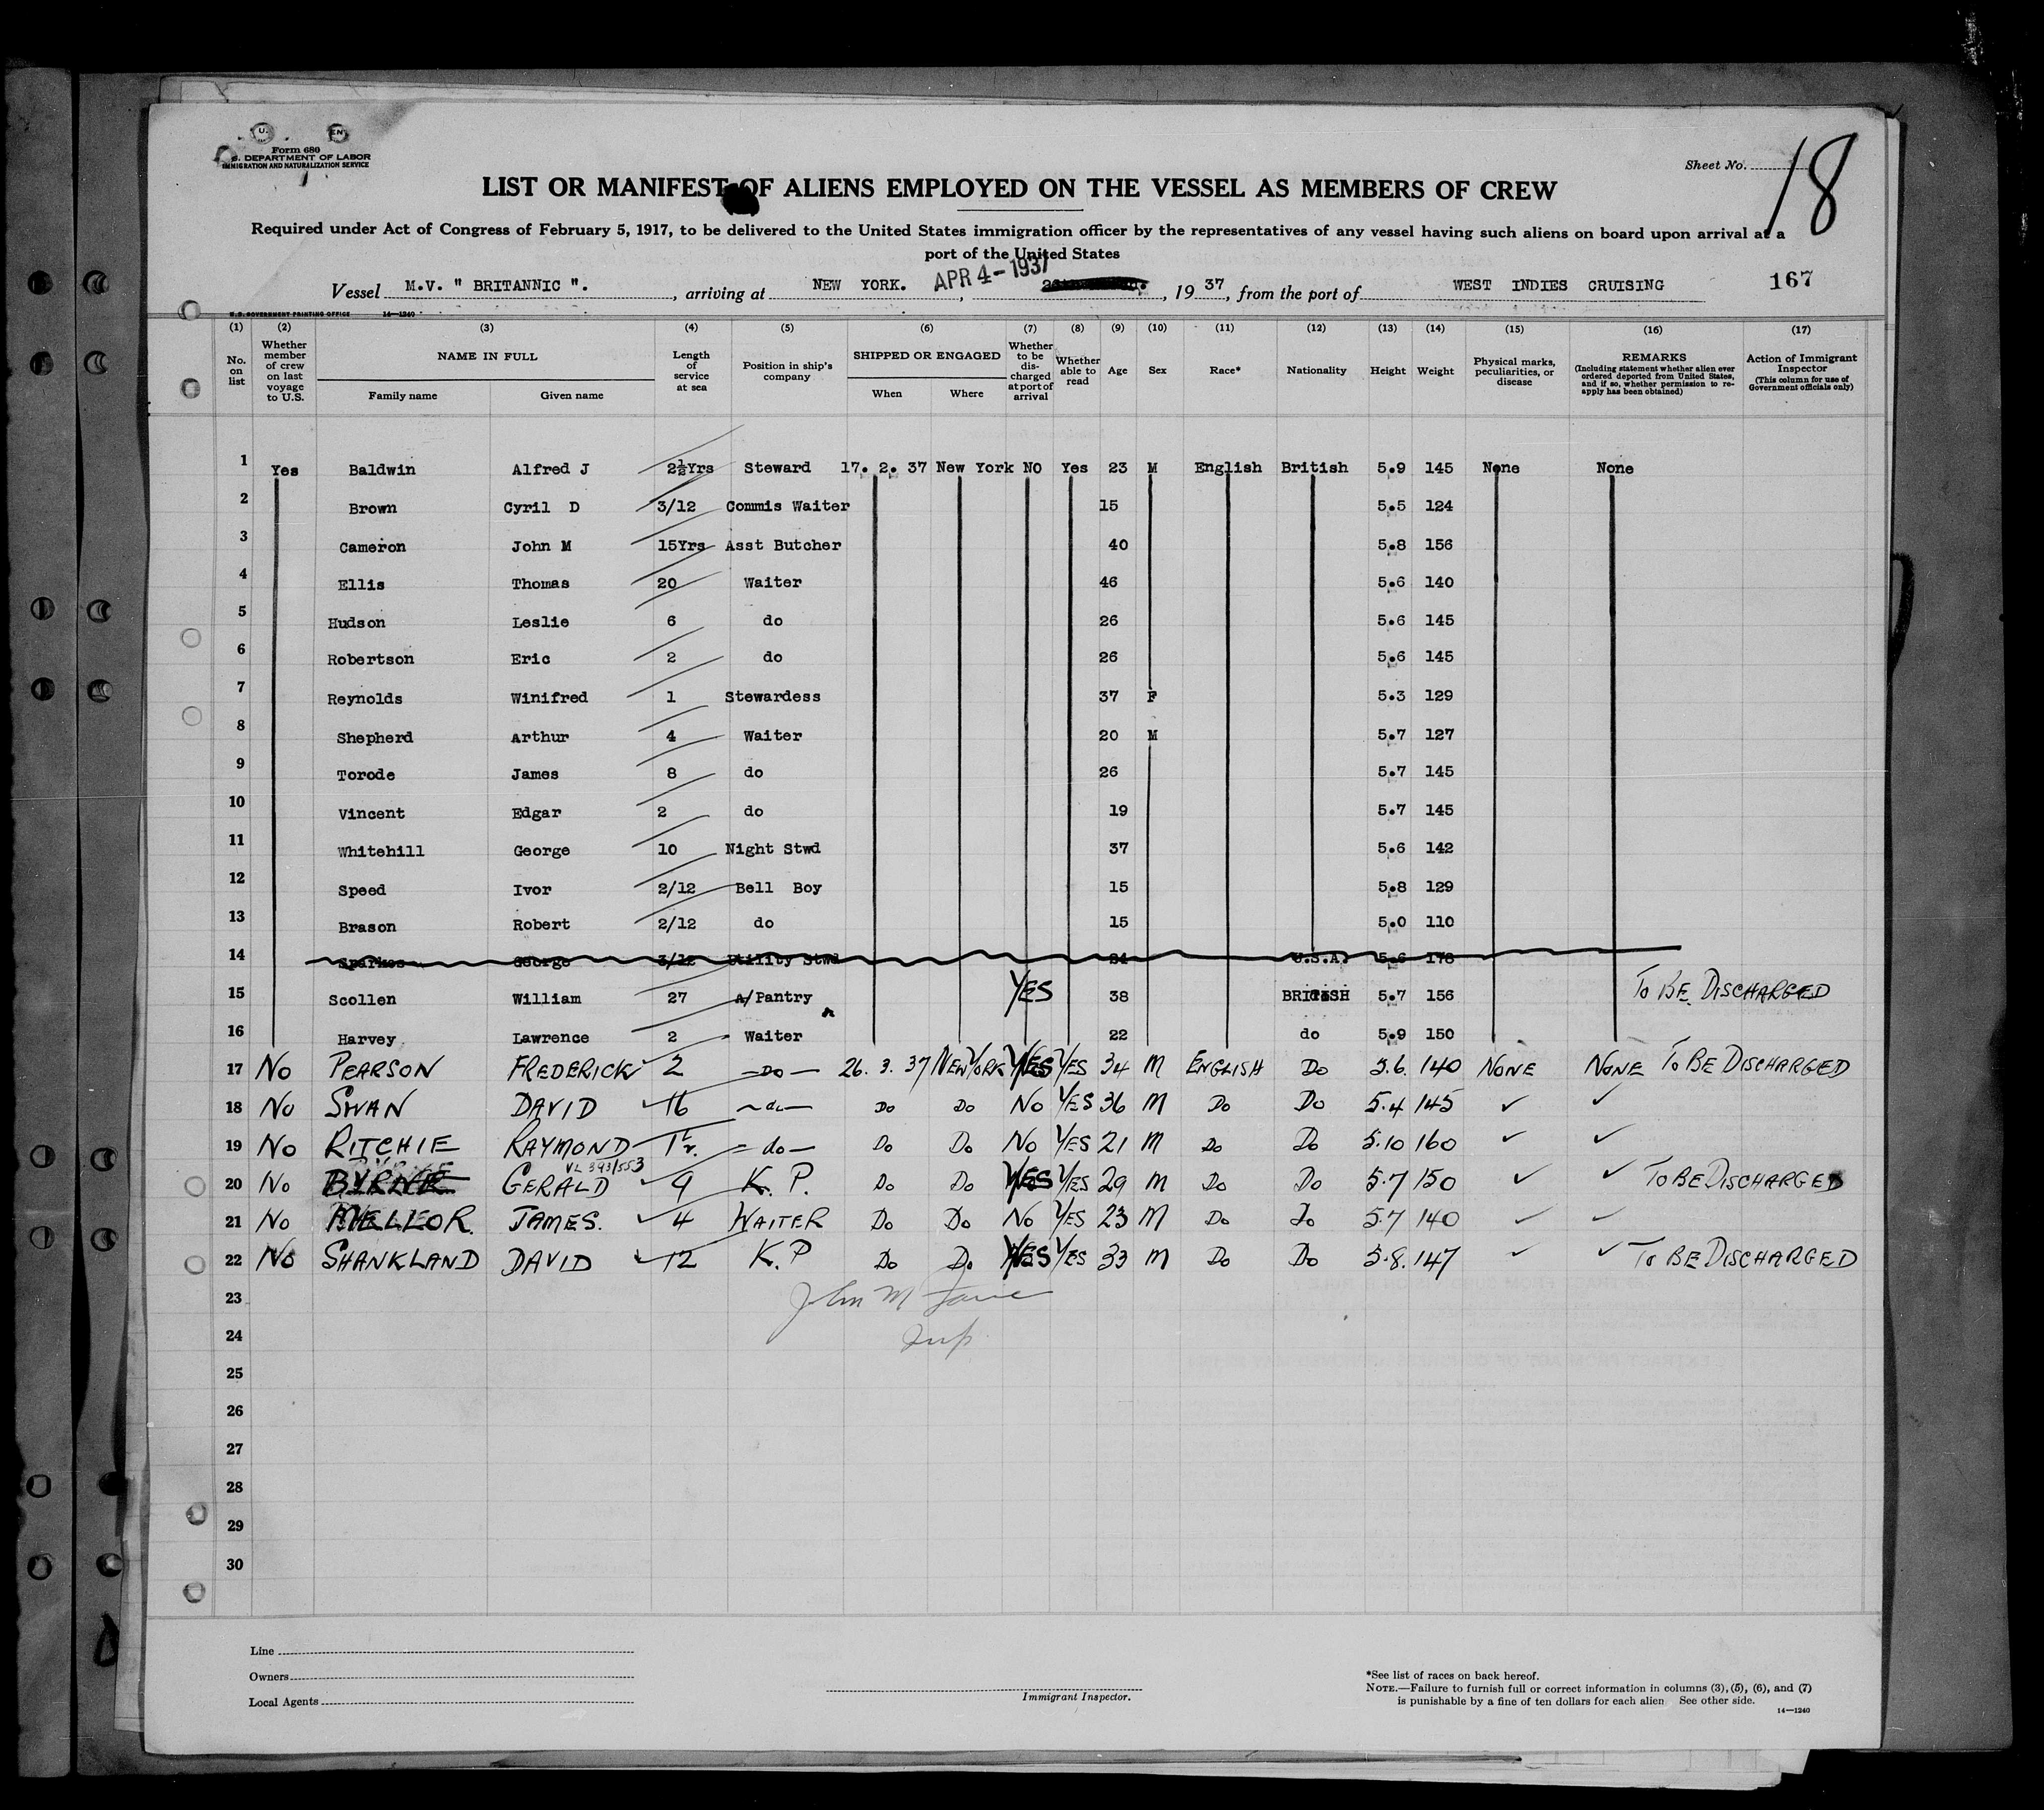 Form 680
U. S. DEPARTMENT OF LABOR
IMMIGRATION AND NATURALIZATION SERVICE
Sheet No. 18
LIST OR MANIFEST OF ALIENS EMPLOYED ON THE VESSEL AS MEMBERS OF CREW
Required under Act of Congress of February 5, 1917, to be delivered to the United States immigration officer by the representatives of any vessel having such aliens on board upon arrival at a
port of the United States
Vessel M.V. " BRITANNIC ". , arriving at NEW YORK. APR 4-1937 , 19 37, from the port of WEST INDIES CRUISING 167
U.S. GOVERNMENT PRINTING OFFICE 14—1240
(1) (2) (3) (4) (5) (6) (7) (8) (9) (10) (11) (12) (13) (14) (15) (16) (17)
No. on list
Whether member of crew on last voyage to U.S.
NAME IN FULL
Family name Given name
Length of service at sea
Position in ship's company
SHIPPED OR ENGAGED
When Where
Whether to be discharged at port of arrival
Whether able to read
Age Sex Race* Nationality Height Weight
Physical marks, peculiarities, or disease
REMARKS
(Including statement whether alien ever ordered deported from United States, and if so, whether permission to reapply has been obtained)
Action of Immigrant Inspector
(This column for use of Government officials only)
1 Yes Baldwin Alfred J 2½Yrs Steward 17. 2. 37 New York NO Yes 23 M English British 5.9 145 None None
2 Brown Cyril D 3/12 Commis Waiter 15 5.5 124
3 Cameron John M 15Yrs Asst Butcher 40 5.8 156
4 Ellis Thomas 20 Waiter 46 5.6 140
5 Hudson Leslie 6 do 26 5.6 145
6 Robertson Eric 2 do 26 5.6 145
7 Reynolds Winifred 1 Stewardess 37 F 5.3 129
8 Shepherd Arthur 4 Waiter 20 M 5.7 127
9 Torode James 8 do 26 5.7 145
10 Vincent Edgar 2 do 19 5.7 145
11 Whitehill George 10 Night Stwd 37 5.6 142
12 Speed Ivor 2/12 Bell Boy 15 5.8 129
13 Brason Robert 2/12 do 15 5.0 110
14 Sparkes George 3/12 Utility Stwd U.S.A. 5.6 178
15 Scollen William 27 A/Pantry YES 38 BRITISH 5.7 156 TO BE DISCHARGED
16 Harvey Lawrence 2 Waiter 22 do 5.9 150
17 NO PEARSON FREDERICK 2 —DO— 26. 3. 37 NEW YORK YES YES 34 M ENGLISH DO 5.6. 140 NONE NONE TO BE DISCHARGED
18 NO SWAN DAVID 16 —do— DO DO NO YES 36 M DO DO 5.4 145 ✓ ✓
19 NO RITCHIE RAYMOND —do— DO DO NO YES 21 M DO DO 5.10 160 ✓ ✓
VL 393/553
20 NO BYRNE GERALD 9 K. P. DO DO YES YES 29 M DO DO 5.7 150 ✓ ✓ TO BE DISCHARGED
21 NO MELLOR. JAMES. 4 WAITER DO DO NO YES 23 M DO DO 5.7 140 ✓ ✓
22 NO SHANKLAND DAVID 12 K. P DO DO YES YES 33 M DO DO 5.8. 147 ✓ ✓ TO BE DISCHARGED
23 John M
24
25
26
27
28
29
30
Line
Owners
Local Agents
Immigrant Inspector.
*See list of races on back hereof.
NOTE.—Failure to furnish full or correct information in columns (3), (5), (6), and (7)
is punishable by a fine of ten dollars for each alien See other side.
14—1240